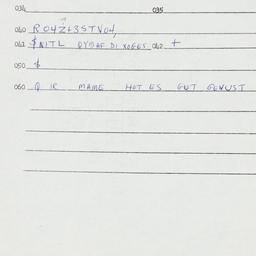 034 035
040 R04Z+3STV04
041 $NITL QYDAF DI XOGES 042 +
050 $
060 Q IR MAME HOT ES GUT GEWUST